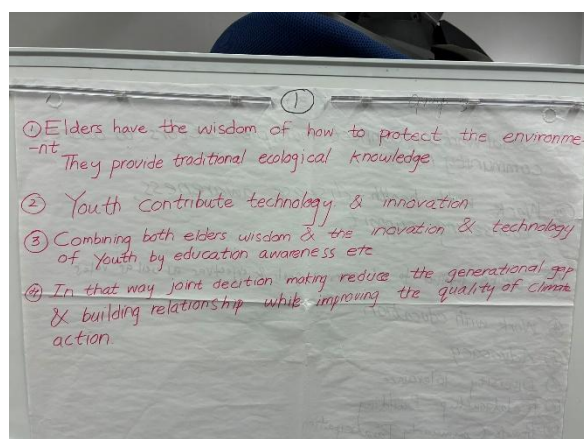 1
① Elders have the wisdom of how to protect the environme-
-nt
They provide traditional ecological knowledge
② Youth contribute technology & innovation
③ Combining both elders wisdom & the inovation & technology
of youth by education awareness etc
④ In that way joint decition making reduce the generational gap
& building relationship while improving the quality of climate
action.